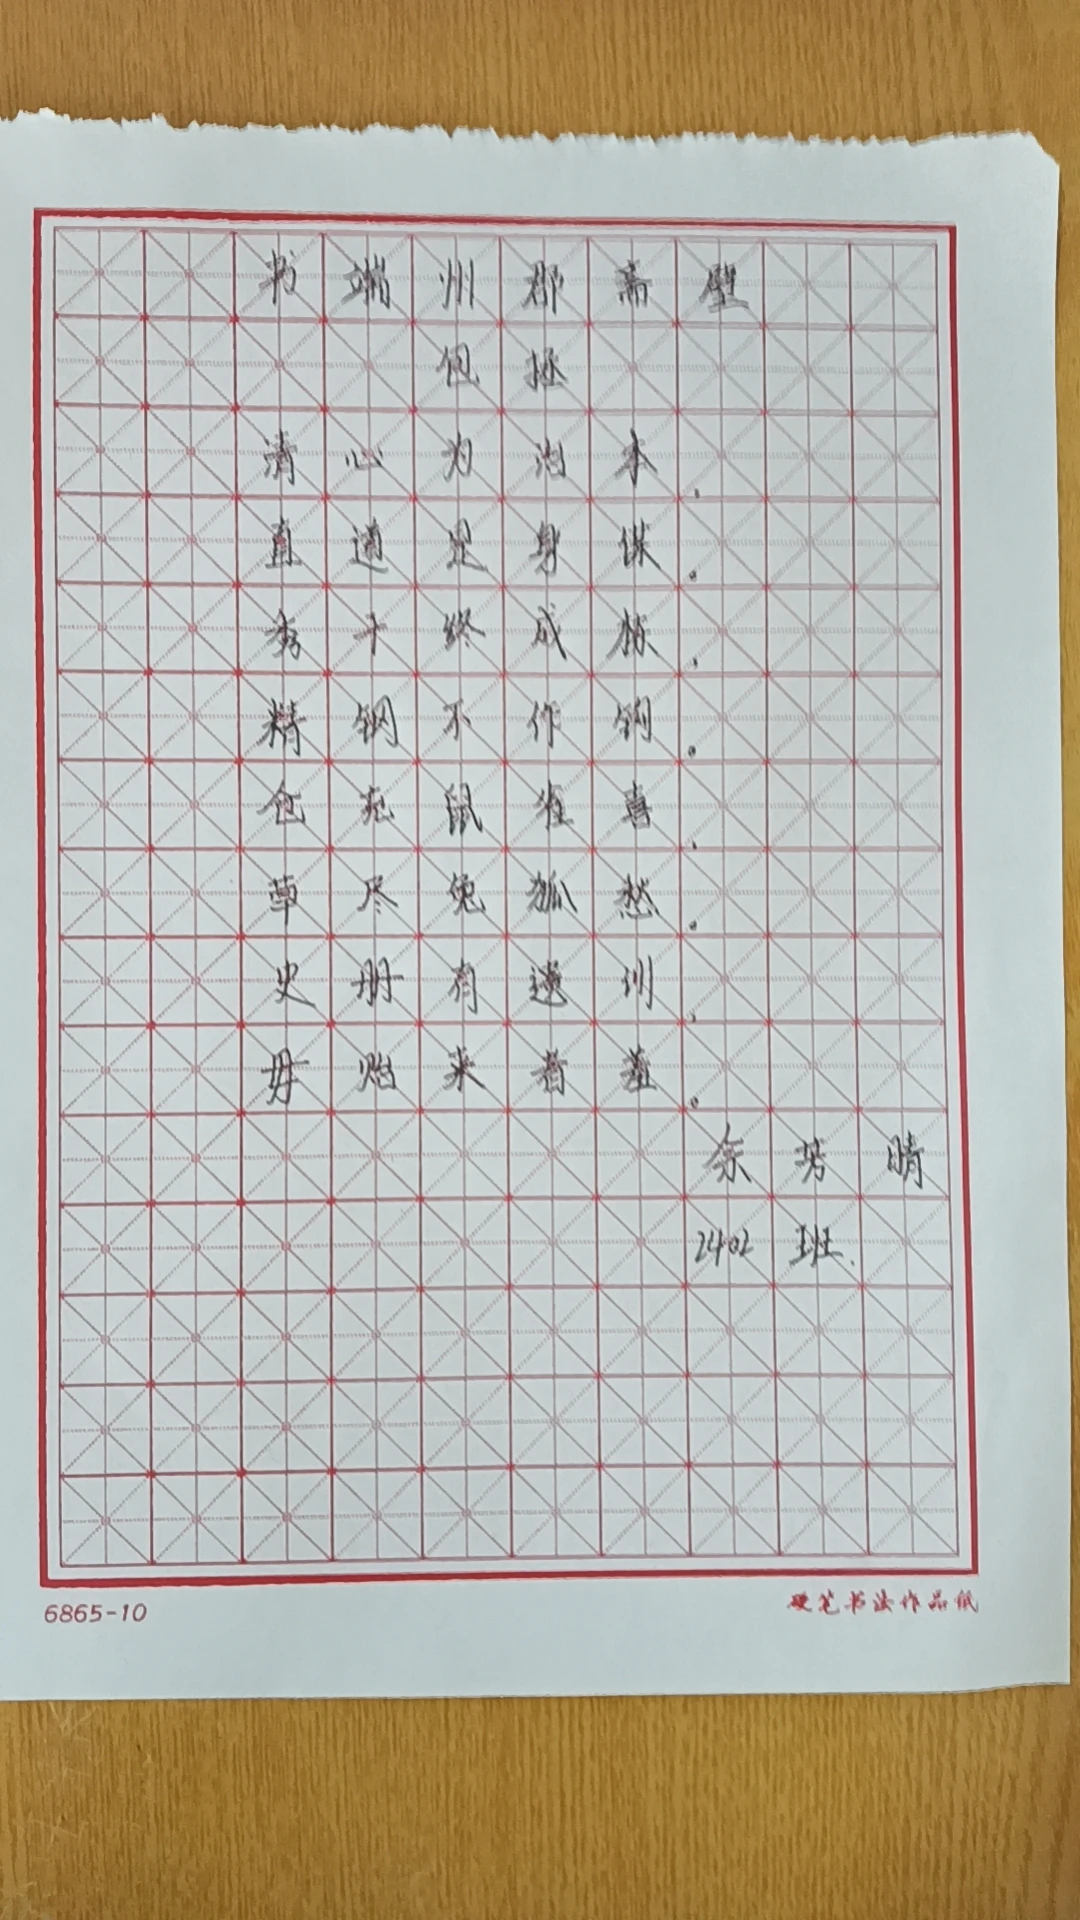 书端州郡斋壁
包拯
清心为治本,
直道是身谋。
秀干终成栋,
精钢不作钩。
仓充鼠雀喜,
草尽兔狐愁。
史册有遗训,
毋贻来者羞。
余芳晴
2402班.
6865-10
硬笔书法作品纸